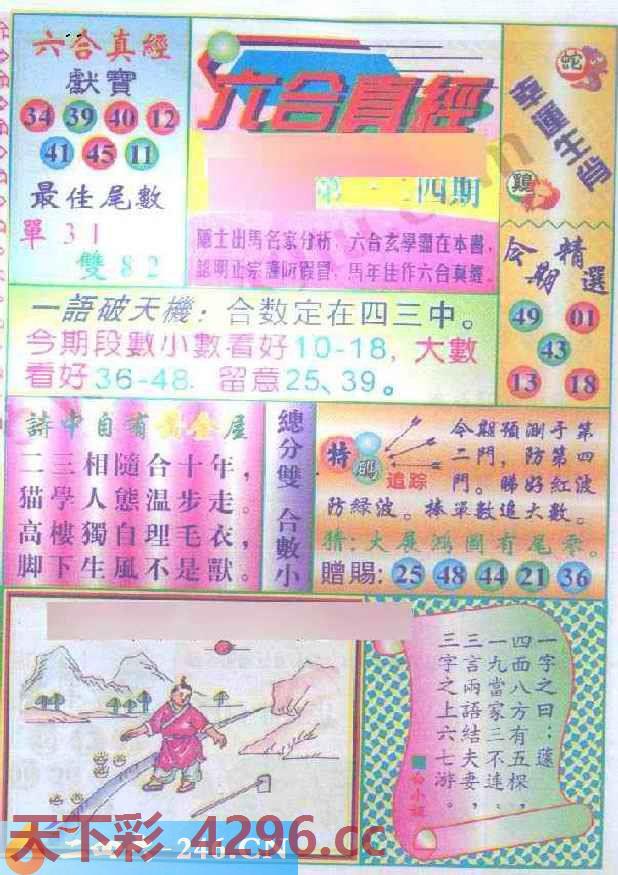 六合真經
獻寶
34 39 40 12
41 45 11
最佳尾數
單31
雙82
六合真經
四期
隱士出馬名家分析,六合玄學盡在本書,
認明正宗謹防假冒,馬年佳作六合真經.
蛇
幸運生肖
鷄
今期精選
49 01
43
13 18
一語破天機:合数定在四三中。
今期段數小數看好10-18,大數
看好36-48.留意25、39。
詩中自有黃金屋
二三相隨合十年,
猫學人態温步走。
高樓獨自理毛衣,
脚下生風不是獸。
總分雙 合數小
特碼
追踪
今期預測于第
二門,防第四
門。睇好紅波
防緑波。捧單數追大數。
猜:大展鴻圖有尾零。
贈賜:25 48 44 21 36
一字之曰:蓬
四面八方有五棵,
一九當家三不連,
三言兩語結夫妻,
三字之上六七游。
白小姐
天下彩 4296.cc
246.CN